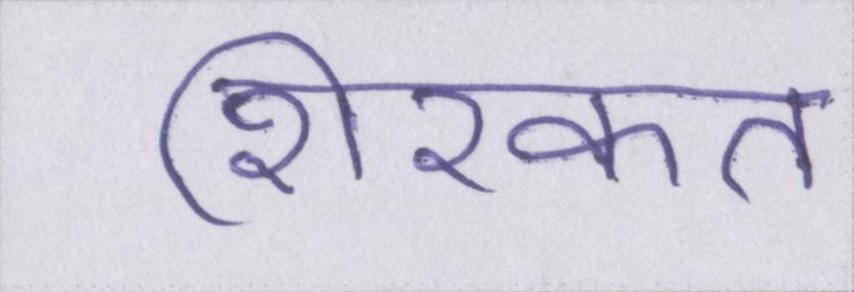 शिरकत